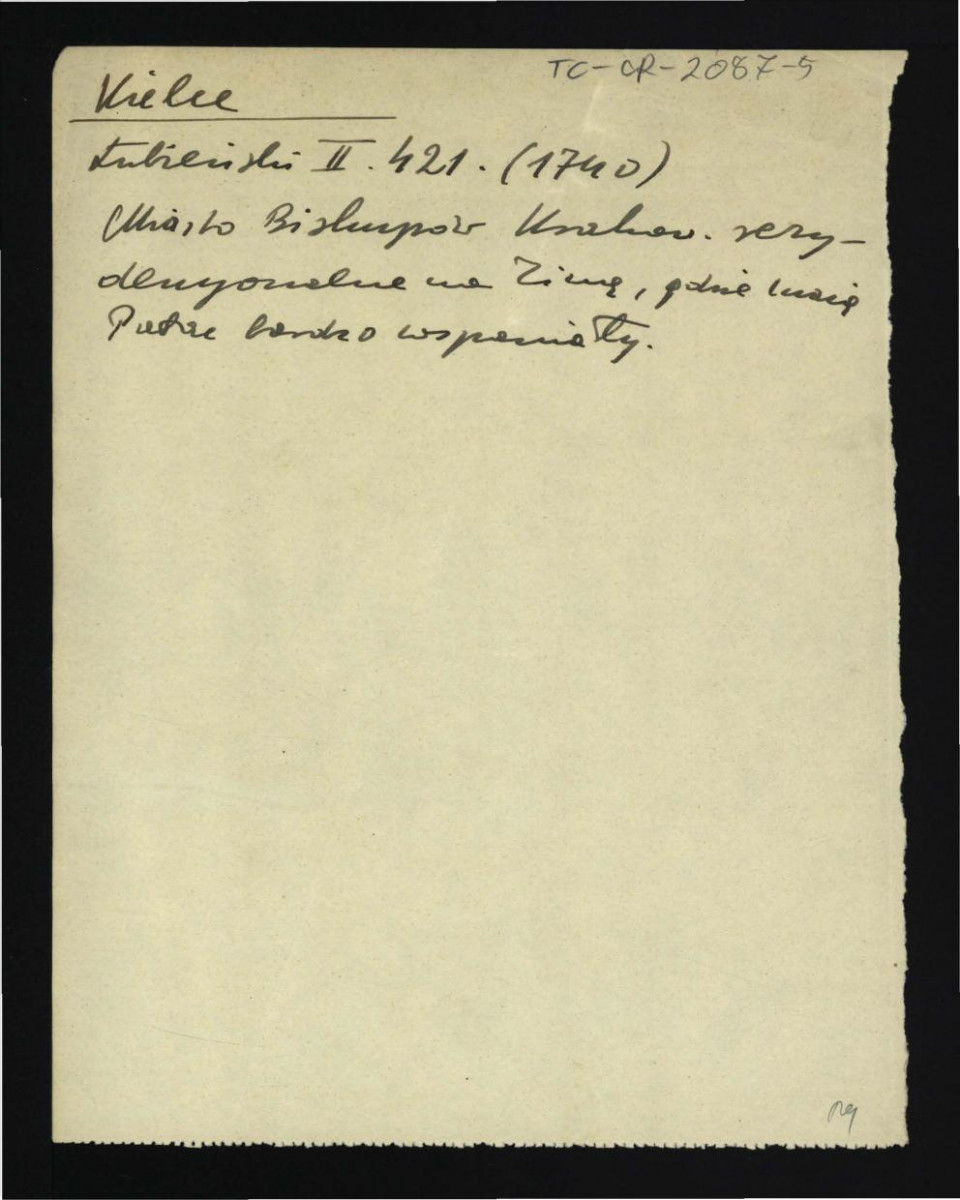 TC-CR-2087-5
Kielce
Łubieński II. 421. (1740)
Miasto Biskupów Krakow. rezy-
dencyonalne na Zimę, gdzie mają
Pałac bardzo wspaniały.